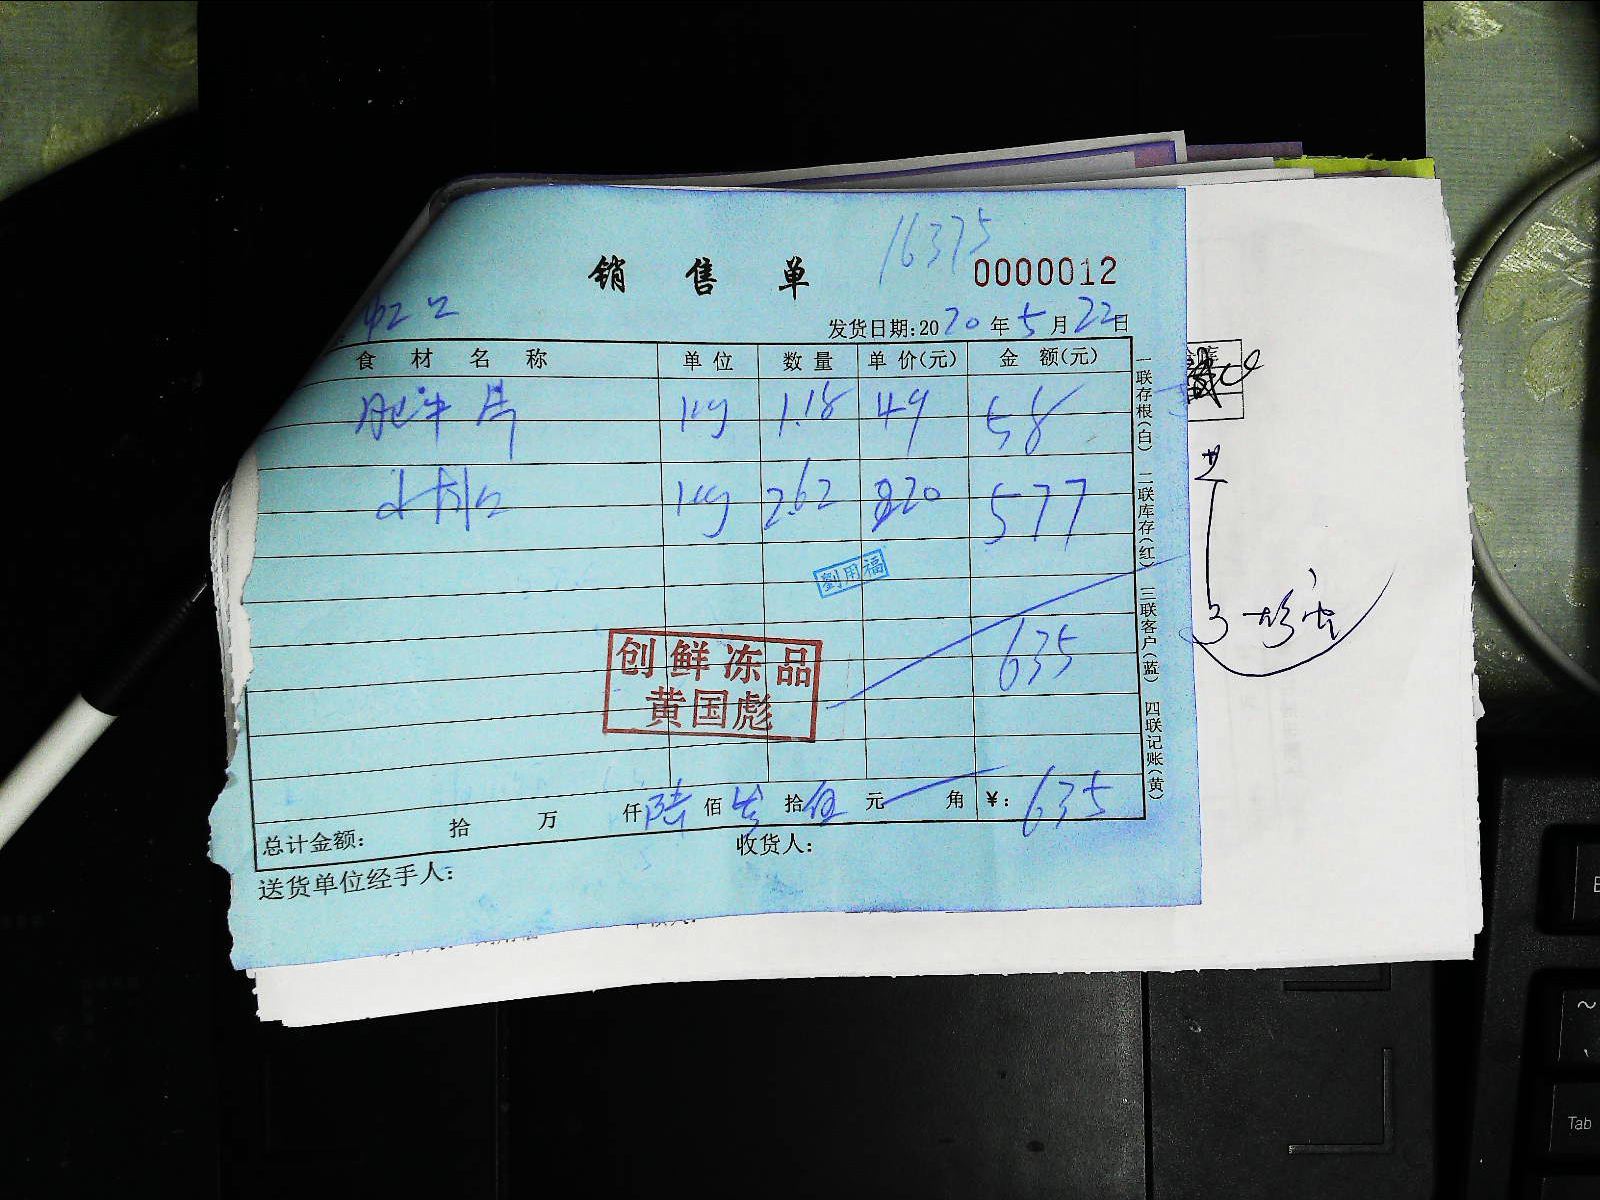 16375
销售单 0000012
发货日期:2020年5月22日
食材名称 单位 数量 单价(元) 金额(元)
肥牛片 Kg 1.18 49 58
Kg 2.62 220 577
劉用福
635
创鲜冻品
黄国彪
总计金额: 拾 万 仟陆佰叁拾伍元 角 ¥:635
送货单位经手人: 收货人:
一联存根(白) 二联库存(红) 三联客户(蓝) 四联记账(黄)
Tab